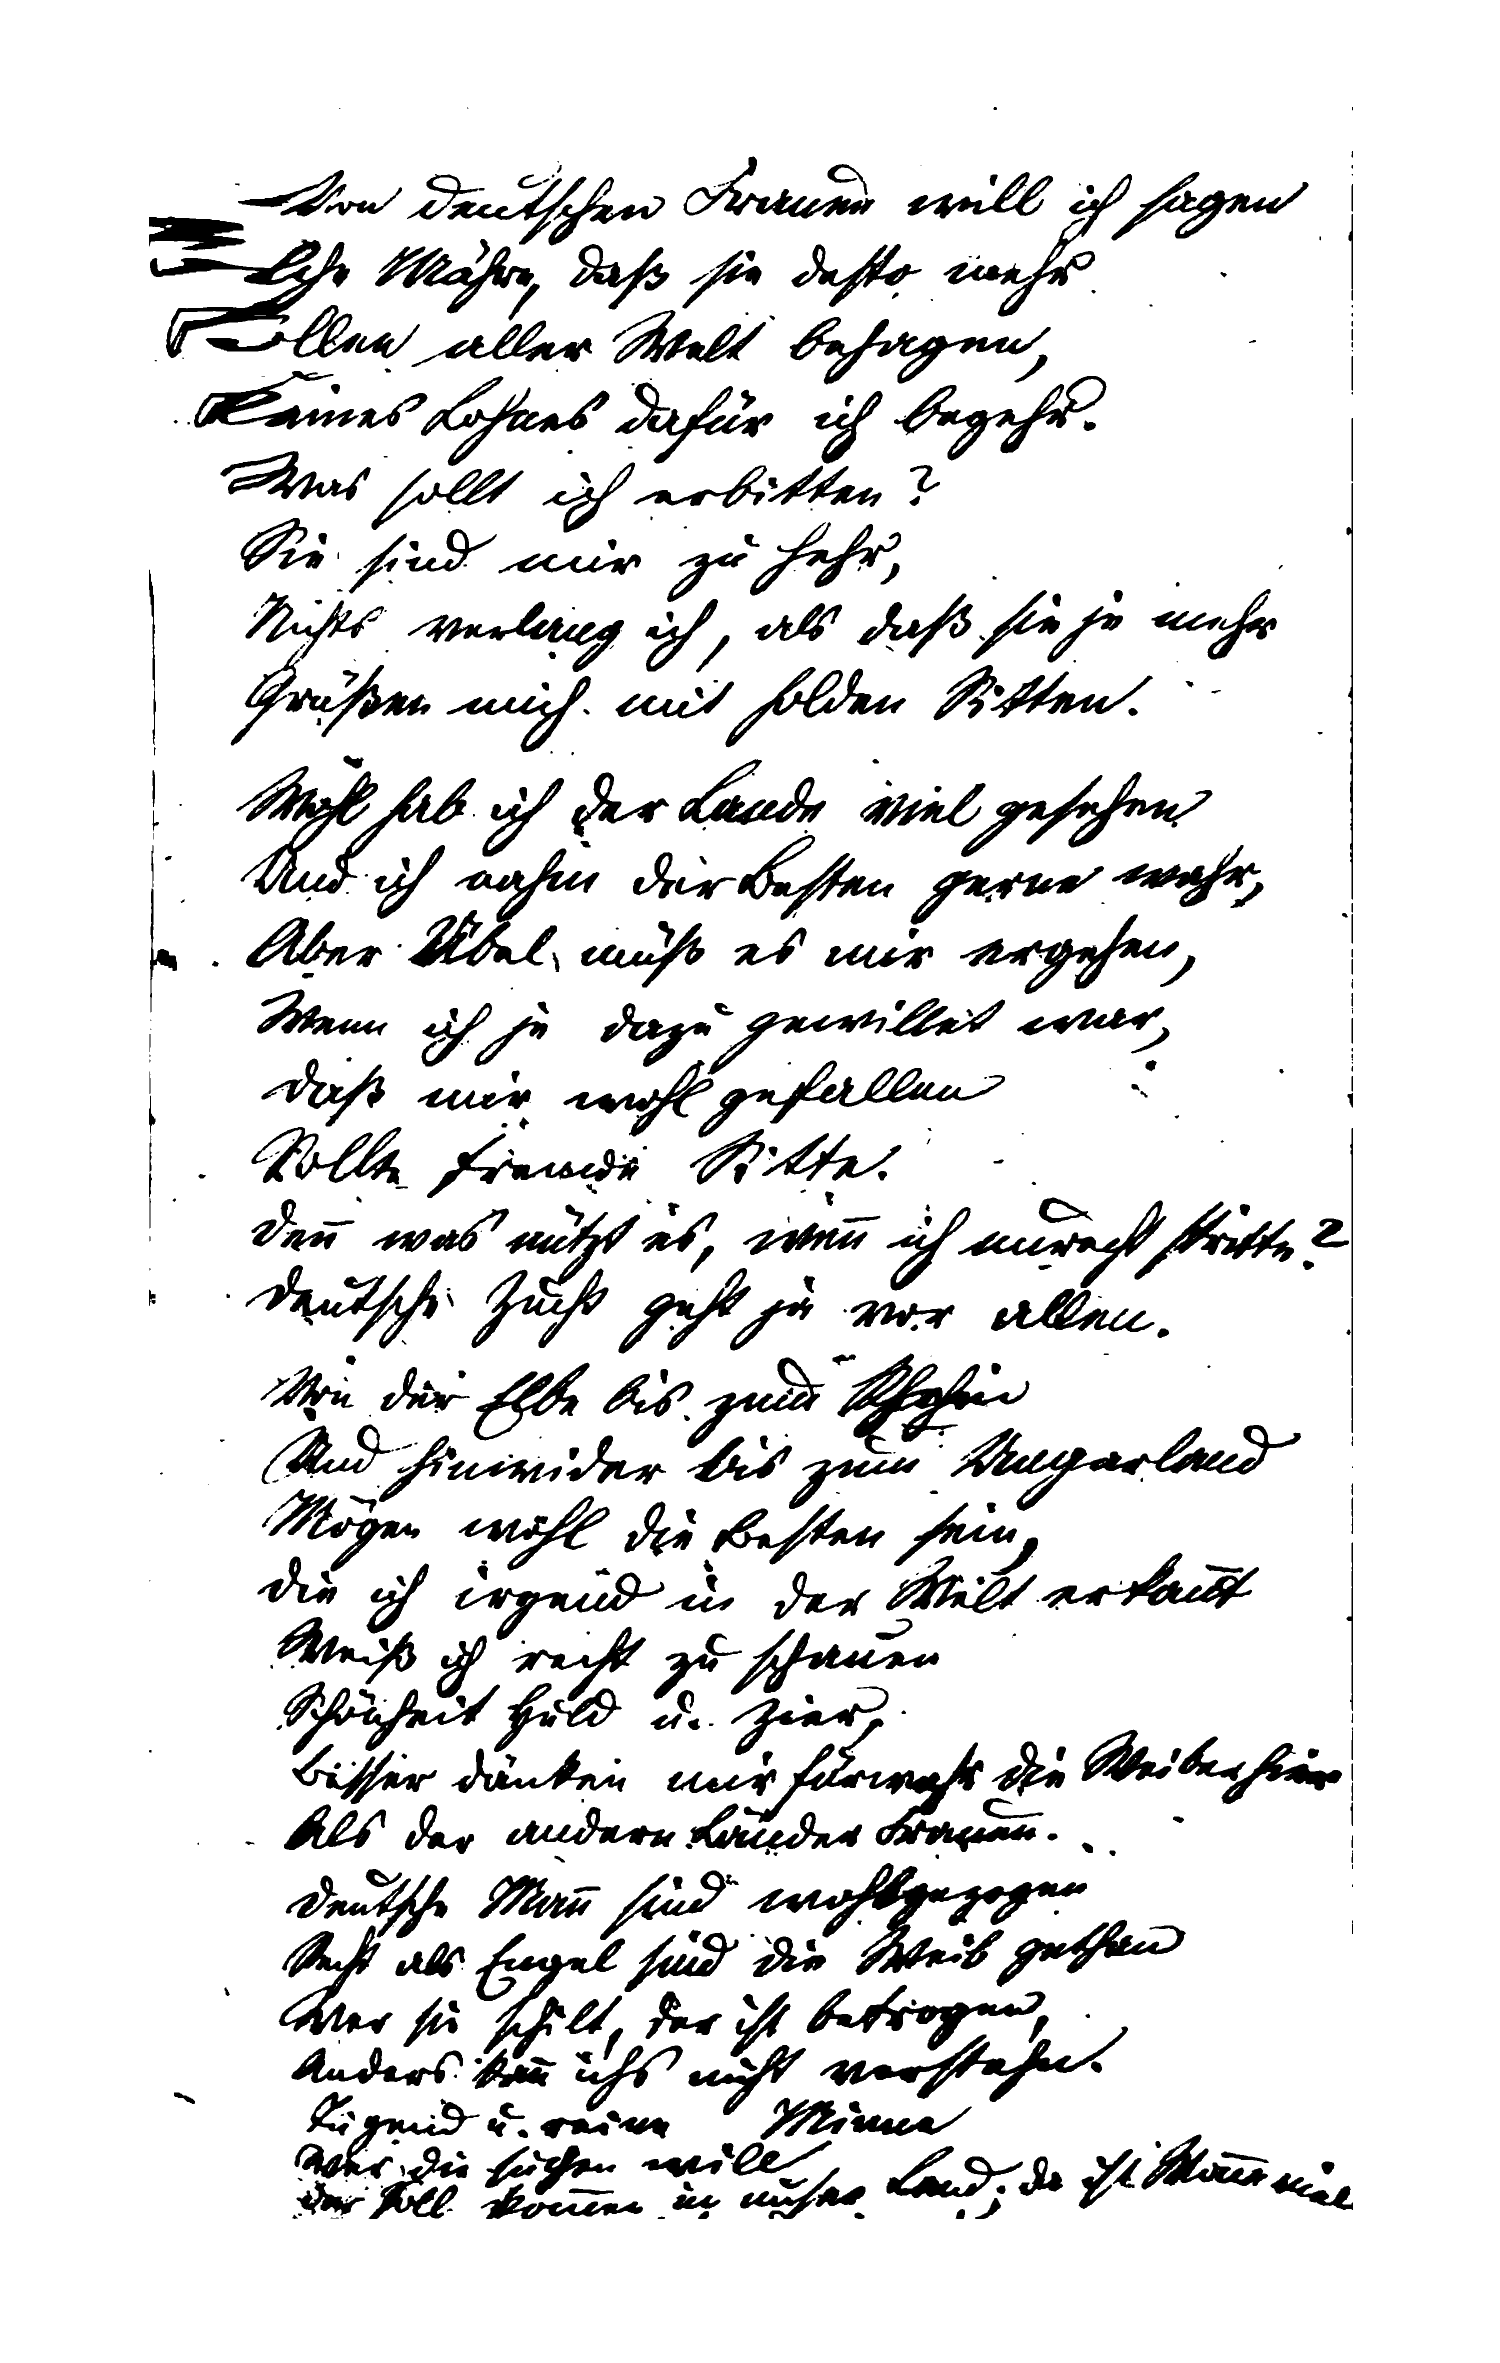 Von deutschen Frauen will ich sagen
Solche Mähre, daß sie desto mehr
Sollen aller Welt behagen,
Keines Lohnes dafür ich begehr.
Was sollt ich erbitten?
Sie sind mir zu hehr,
Nichts verlang ich, als daß sie je mehr
Grüßen mich mit holden Sitten.
Wohl hab ich der Lande viel gesehen
Und ich nahm der Besten gerne wahr,
Aber Übel muß es mir ergehen,
Wenn ich je dazu gewillet war,
Daß mir wohl gefallen
Sollte fremde Sitte.
Deñ was nützt es, weñ ich unrecht stritte?
Deutsche Zucht geht ja vor allen.
Von der Elbe bis zum Rhein
Und hinwider bis zum Ungarland
Mögen wohl die Besten sein,
Die ich irgend in der Welt erkañt
Weiß ich recht zu schauen
Schönheit Huld u. Zier,
Besser dünken mir fürwahr die Weiber hier
Als der andern Länder Frauen.
Deutsche Mañ sind wohlgezogen
Recht als Engel sind die Weib gethan
Wer sie schilt, der ist betrogen,
Anders kañ ichs nicht verstehn.
Tugend u. reine Minne
Wer die suchen will
Der soll kom̃en in unser Land; da ist Woñe viel